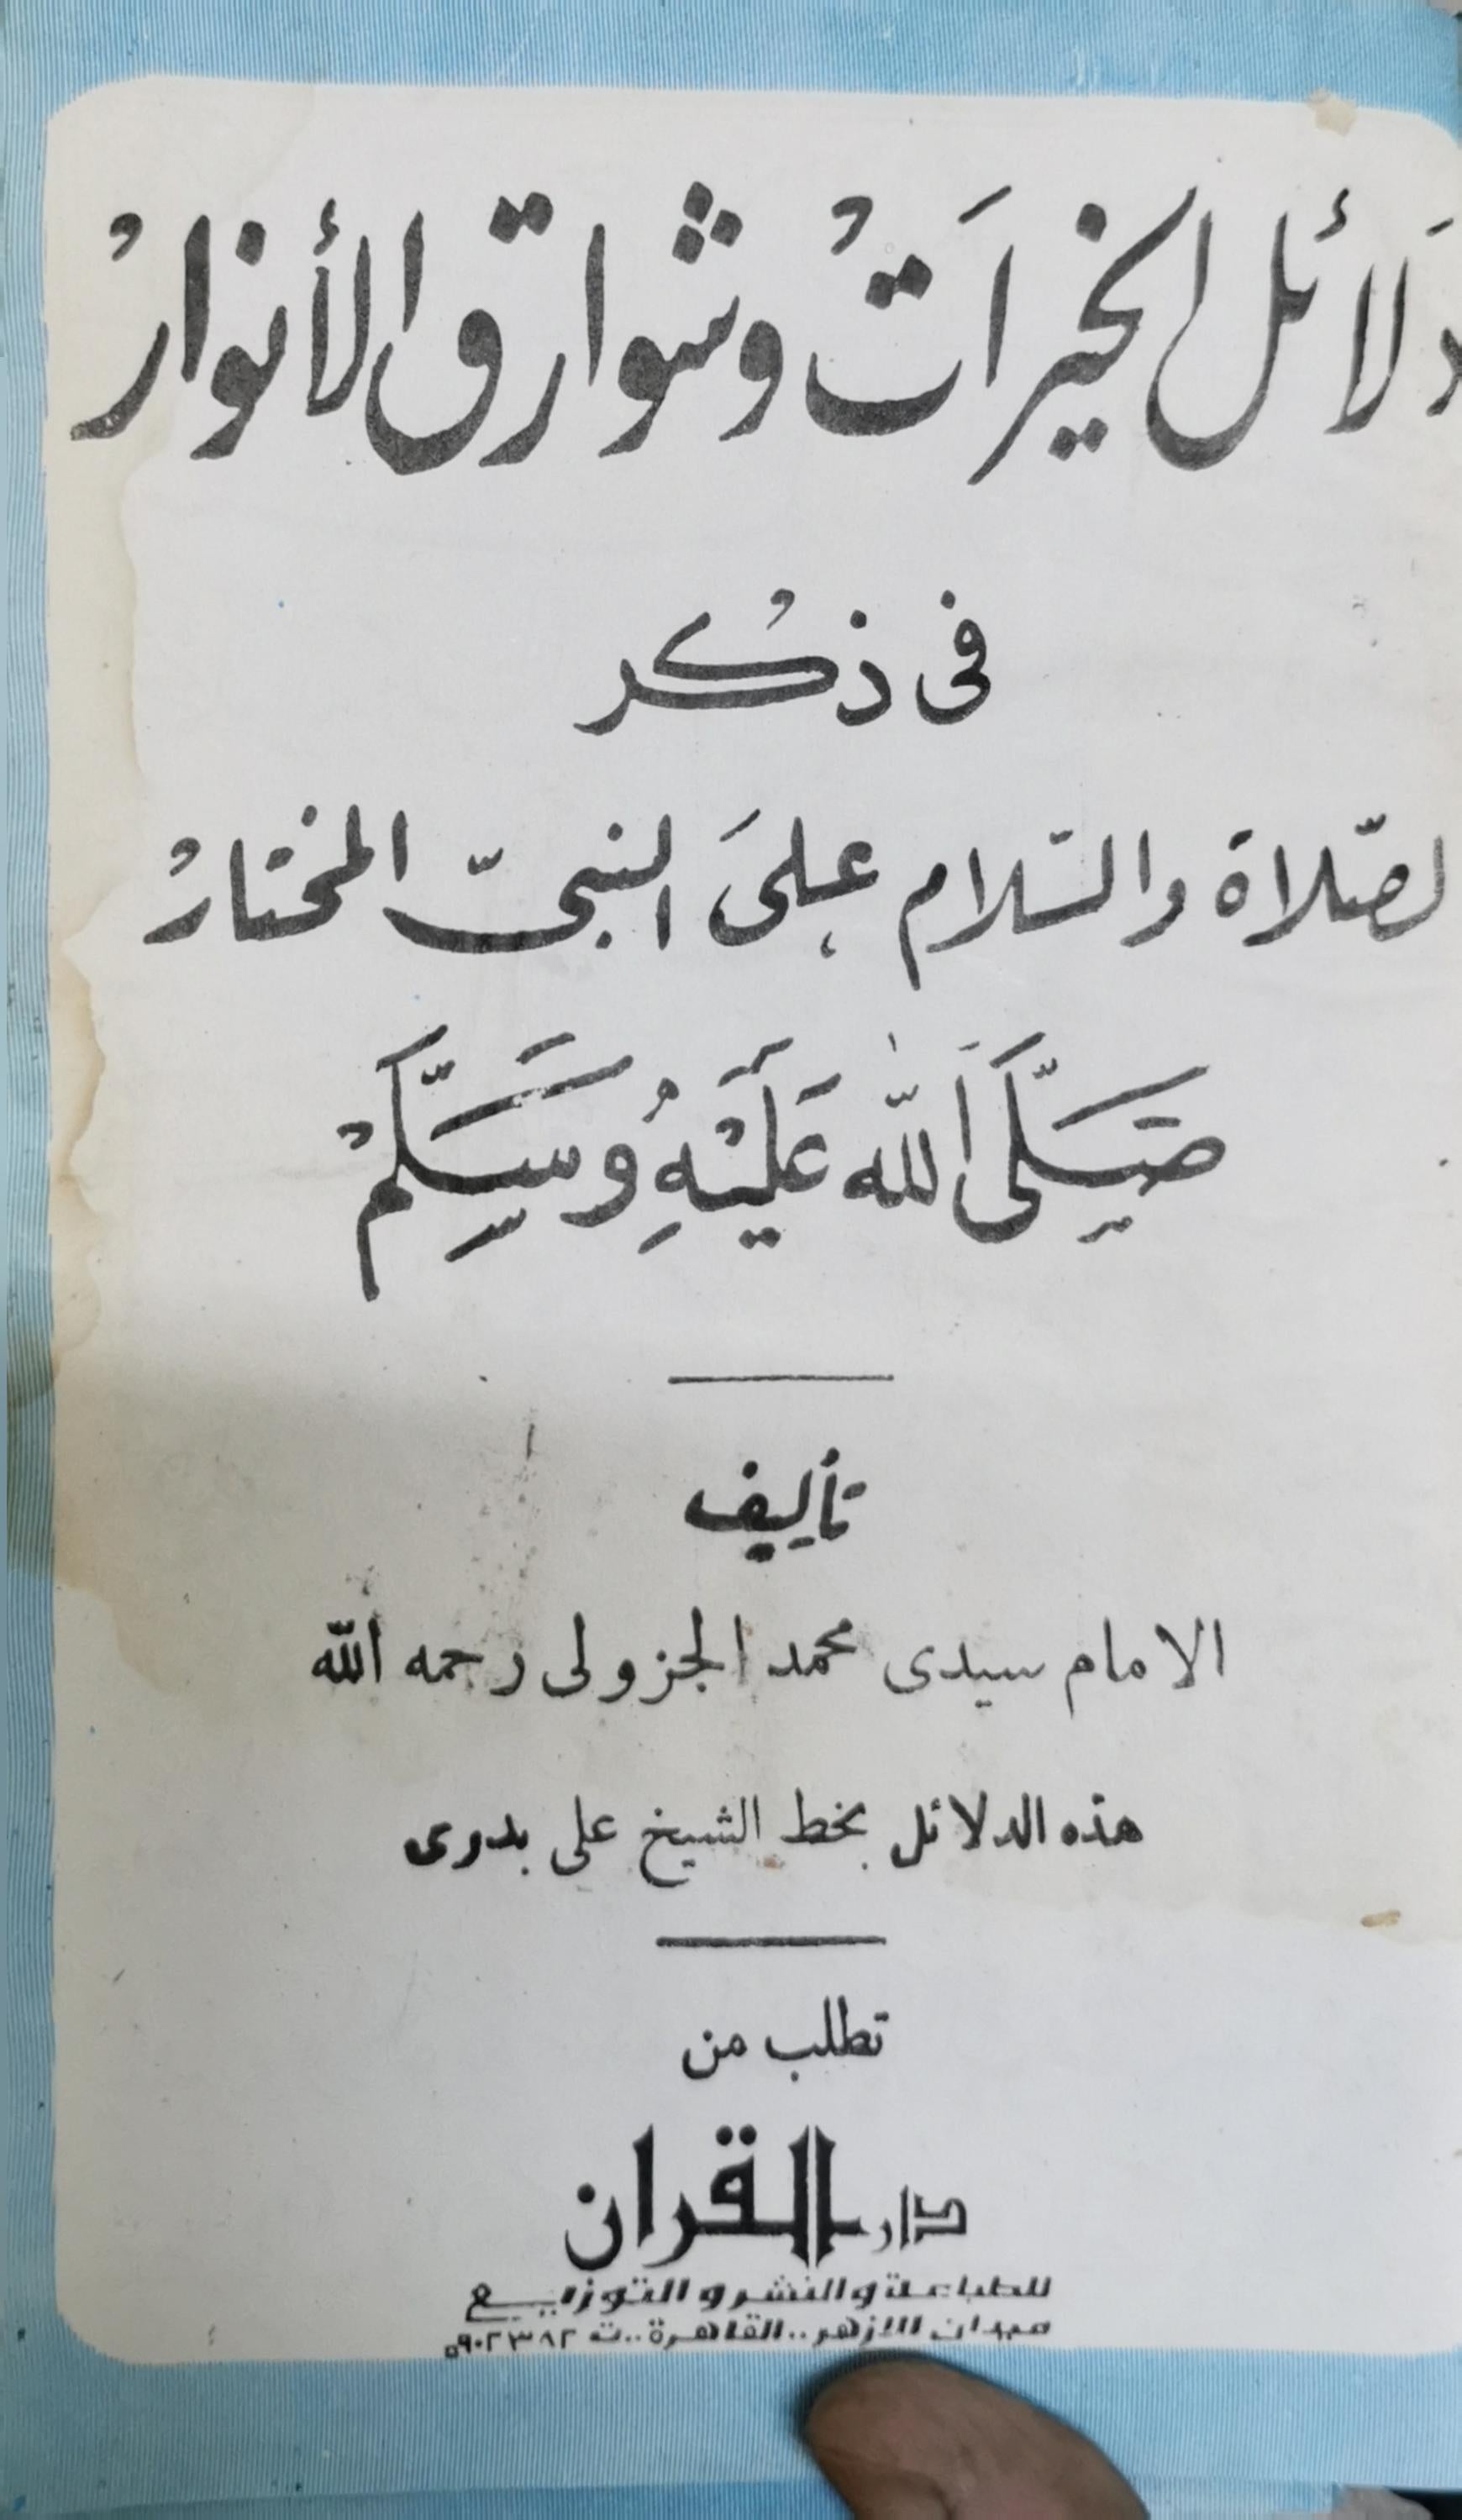 دَلَائل الخيرَاتْ وشوارق الأنوارْ
فى ذكْر
لصّلاة والسّلام علىَ النبىّ المختارْ
صَلَّى اَللّٰه عَلَيْهِ وَسَلَّمْ
تأليف
الامام سيدى محمد الجزولى رحمه اللّه
هذه الدلائل بخط الشيخ على بدوى
تطلب من
دار القران
للطباعة والنشر والتوزيع
ميدان الازهر .. القاهرة .. ت ٥٩٠٢٣٨٢